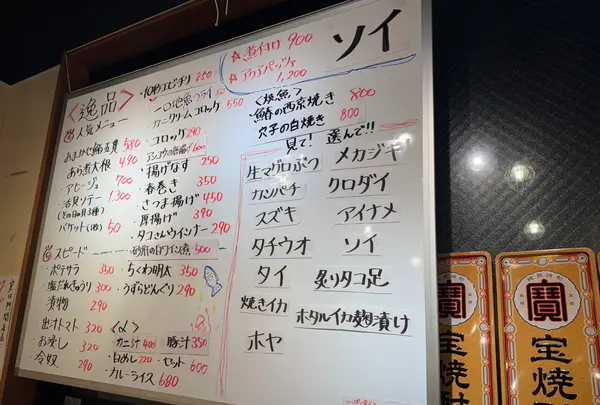 <逸品>
人気メニュー
おまかせ鮨5貫 580
あら煮大根 490
アヒージョ 700
活貝ソテー 1,300
(どの日の貝3種)
バケット(1枚) 50
スピード
・ポテサラ 350
・塩だれきゅうり 300
・漬物 290
出汁トマト 320
お浸し 320
冷奴 290
・相野エビチリ 850
・一口地魚フライ
・カニクリームコロッケ 550
・コロッケ 290
600
・揚げなす 250
・春巻き 350
・さつま揚げ 450
・厚揚げ 390
・タコさんウインナー 290
・砂肝の白ワイン煮 500
・ちくわ明太 350
・うずらどんぐり 290
<〆>
・カニ汁 400
豚汁 350
・白めし 220
・セット 600
・カレーライス 680
☆煮付け 900
☆アクアパッツァ 1,200
ソイ
<焼魚>
・鰆の西京焼き 800
・穴子の白焼き 800
見て!選んで!!
生マグロぶつ
メカジキ
カンパチ
クロダイ
スズキ
アイナメ
タチウオ
ソイ
タイ
炙りタコ足
焼きイカ
ホタルイカ麹漬け
ホヤ
寶
宝焼酎
寶
宝焼酎